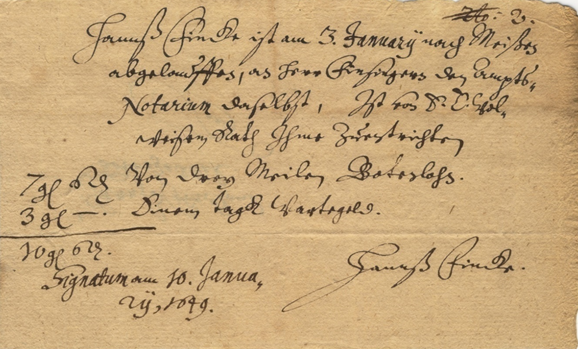 No: 2.
Hannß Fincke ist am 3. January nach Meißen
abgelauffen, an Herr den Ampts-
Notarium daselbst, Ist von E. E. Wol-
weisen Rath Ihme Zuentrichten
7 gl 6 ₰ Von drey Meilen Botenlohn.
3 gl —. Einem tagk Wartegeld.
10 gl 6 ₰.
Signatum am 10. Janua,
rij, 1649.
Hannß Fincke.